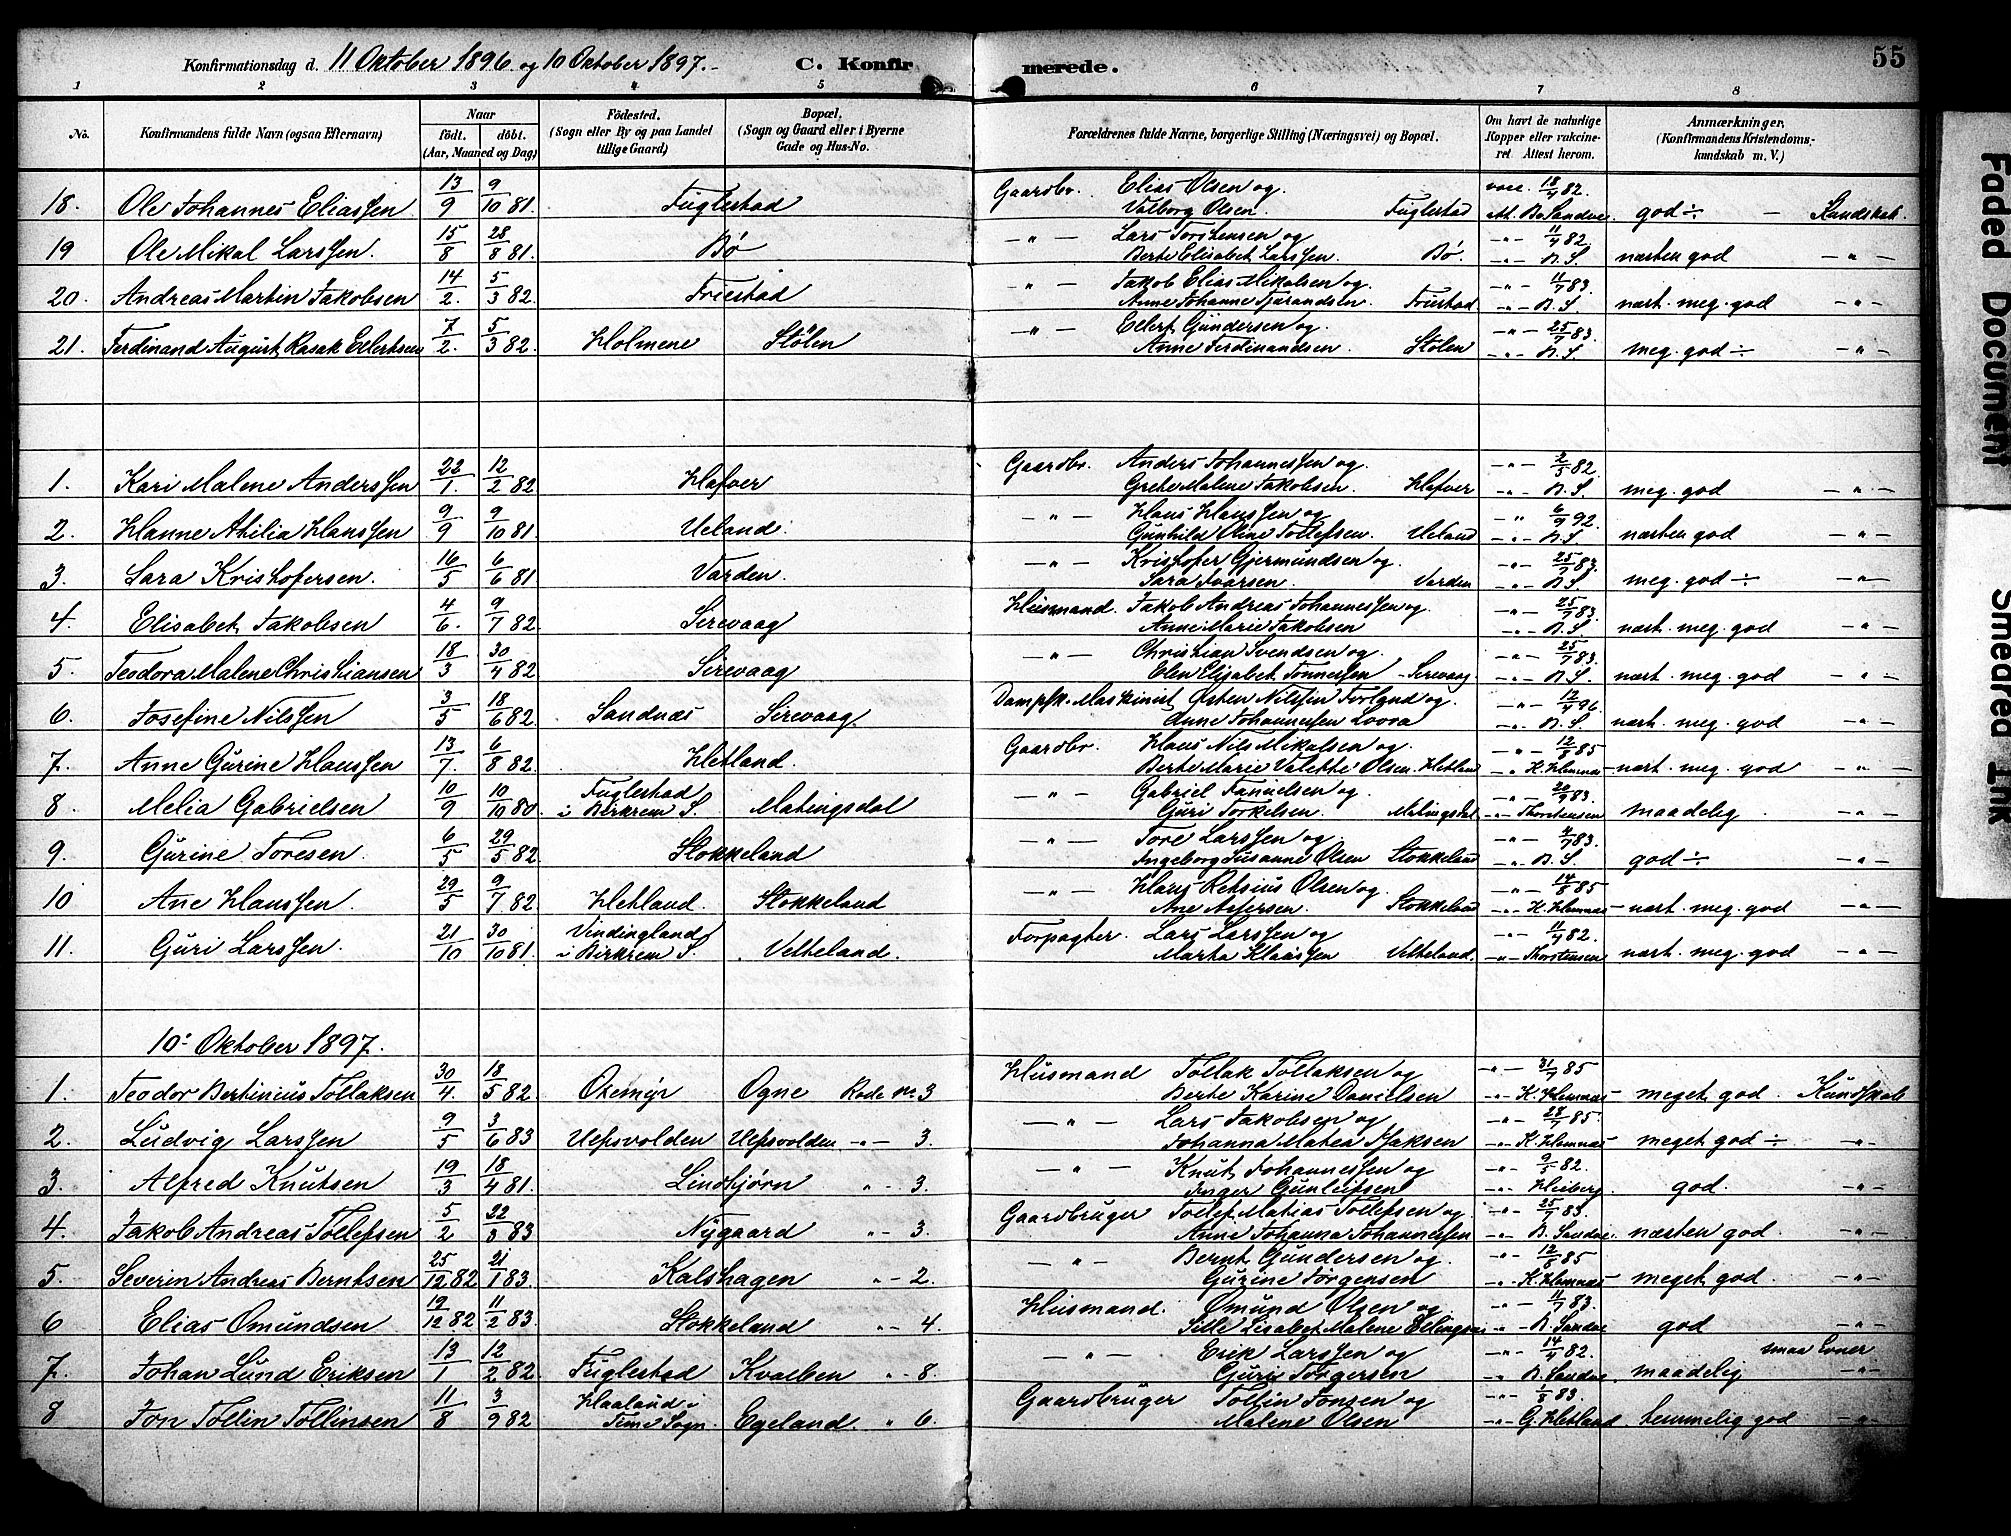 Konfirmationsdag d. 11 Oktober 1896 og 10 Oktober 1897. C. Konfirmerede. 55
1 2 3 4 5 6 7 8
No. Konfirmandens fulde Navn (ogsaa Efternavn) Naar födt. döbt. (Aar, Maaned og Dag) Födested. (Sogn eller By og paa Landet tillige Gaard) Bopæl. (Sogn og Gaard eller i Byerne Gade og Hus-No. Forældrenes fulde Navne, borgerlige Stilling (Næringsvei) og Bopæl. Om havt de naturlige Kopper eller vakcineret. Attest herom. Anmærkninger, (Konfirmandens Kristendomskundskab m. V.)
18. Ole Johannes Eliassen 13/9 9/10 81. Fuglestad Gaardbr. Elias Olsen og Valborg Olsen. Fuglestad vacc. 18/4 82. Att. B. Sandve. god ÷ — Kundskab.
19 Ole Mikal Larssen. 15/8 28/8 81. Bø — " — Lars Torstensen og Berte Elisabet Larssen. Bø. — " — 11/4 82. — " — B. S. næsten god — " —
20. Andreas Martin Jakobsen 14/2. 5/3 82. Friestad — " — Jakob Elias Mikalsen og Anne Johanne Tjerandsen. Friestad — " — 11/7 83. — " — B. S. næst. meg. god — " —
21. Ferdinand August Rasak Eilertsen 7/2. 5/3 82. Holmene Stölen — " — Eilert Gundersen og Anne Ferdinandsen. Stölen — " — 25/7 83. — " — B. S. meg. god ÷ — " —
1. Kari Malene Anderssen 22/1. 12/2 82 Hafver Gaardbr. Anders Johannessen og Grete Malene Jakobsen. Hafver — " — 2/5 82. — " — B. S. meg. god — " —
2. Hanne Atilia Hanssen 9/9 9/10 81. Ueland. — " — Hans Hanssen og Gunhild Oline Tollefsen. Ueland — " 6/9 92. — " — B. S næsten god — " —
3. Sara Kristofersen. 16/5 6/6 81 Varden. — " — Kristofer Gjermundsen og Sara Ivarsen. Varden — " — 25/7 83. — " — B. S meg. god ÷ — " —
4 Elisabet Jakobsen 4/6. 9/7 82. Sirevaag Husmand. Jakob Andreas Johannessen og Anne Marie Jakobsen — " — 25/7 83. — " — B. S. næst. meg. god — " —
5. Teodora Malene Christiansen 18/3 30/4 82 Sirevaag — " — Christian Svendsen og Elen Elisabet Tønnessen Sirevaag — " — 25/7 83. — " — B. S. næst. meg. god — " —
6. Josefine Nilssen 3/5 18/6 82. Sandnæs Sirevaag Dampsk. Maskinist Østen Nilssen Forland og Anne Johannessen — " — 12/4 96. — " — B. S næst. meg. god — " —
7. Anne Gurine Hanssen 13/7. 6/8 82. Hetland. Gaardbr. Hans Nils Mikalsen og Berte Marie Valette Olsen. Hetland — " — 12/8 85 — " K. Hemnæs — næst. meg. god — " —
8 Melia Gabrielsen 10/9 10/10 80. Fuglestad i Birkrem S. Matingsdal — " — Gabriel Tanielsen og Guri Torkelsen. Matingsdal — " — 20/9 83. — " — Thorstensen maadelig — " —
9. Gurine Toresen 6/5 29/5 82. Stokkeland — " — Tore Larssen og Ingeborg Susanne Olsen Stokkeland — " — 4/7 83. — " — B. S. god ÷ — " —
10 Ane Hanssen 29/5 9/7 82. Hetland. Stokkeland — " — Hans Retsius Olsen og Ane Assersen. Stokkeland — " — 14/8 85 — " — K. Hemnæs — næst. meg. god — " —
11. Guri Larssen. 21/10 30/10 81. Vindingland i Birkrem S. Vetteland. Forpagter. Lars Larssen og Marta Klaassen Vetteland. — " — 11/4 82. — " — Thorstensen næst. meg. god — " —
10: Oktober 1897.
1. Teodor Bertinius Tollaksen 30/4. 18/5 82. Oremyr Ogne Rode No 3 Husmand Tollak Tollaksen og Berte Karine Danielsen — " — 31/7 85 — " — K. Hemnæs meget god. Kundskab
2. Ludvig Larssen 9/5 3/6 83 Uefsvolden Uefsvolden — " — 3. — " — Lars Jakobsen og Johanna Matea Isaksen — " — 28/7 85. — " — K. Hemnæs meget god ÷ — " —
3. Alfred Knutsen 19/3 18/4 81. Lindtjørn " — 3. — " — Knut Johannessen og Inger Gunleifsen — " — 9/5 82. — " — Heiberg. god. — " —
4. Jakob Andreas Tollefsen 5/2 22/3 83 Nygaard " — 3. Gaardbruger Tollef Matias Tollefsen og Anne Johanna Johannessen — " — 25/7 83. — " — B. Sandve. næsten god — " —
5. Severin Andreas Berntsen 25/12 82 21/1 83. Kalshagen " — 2. — " — Bernt Gundersen og Gurine Jørgensen — " — 12/8 85. — " — K. Hemnæs meget god. — " —
6 Elias Omundsen 19/12 82. 11/2 83. Stokkeland " — 4. Husmand. Omund Olsen og Sille Lisabet Malene Ellingsen — " — 11/7 83. — " — B. Sandve god — " —
7. Johan Lund Eriksen 13/1 12/2 82. Fuglestad Kvalben " — 8. — " — Erik Larssen og Guri Torgersen — " — 14/4 82. — " — B. Sandve maadelig smaa Evner — " —
8 Jon Tollin Tollinsen 11/8 3/9 82 Haaland i Time Sogn. Egeland. " 6. Gaardbruger Tollin Jonsen og Malene Olsen — " — 1/8 83. — " — G. Hetland temmelig god — " —
Faded Document
Smeared Ink